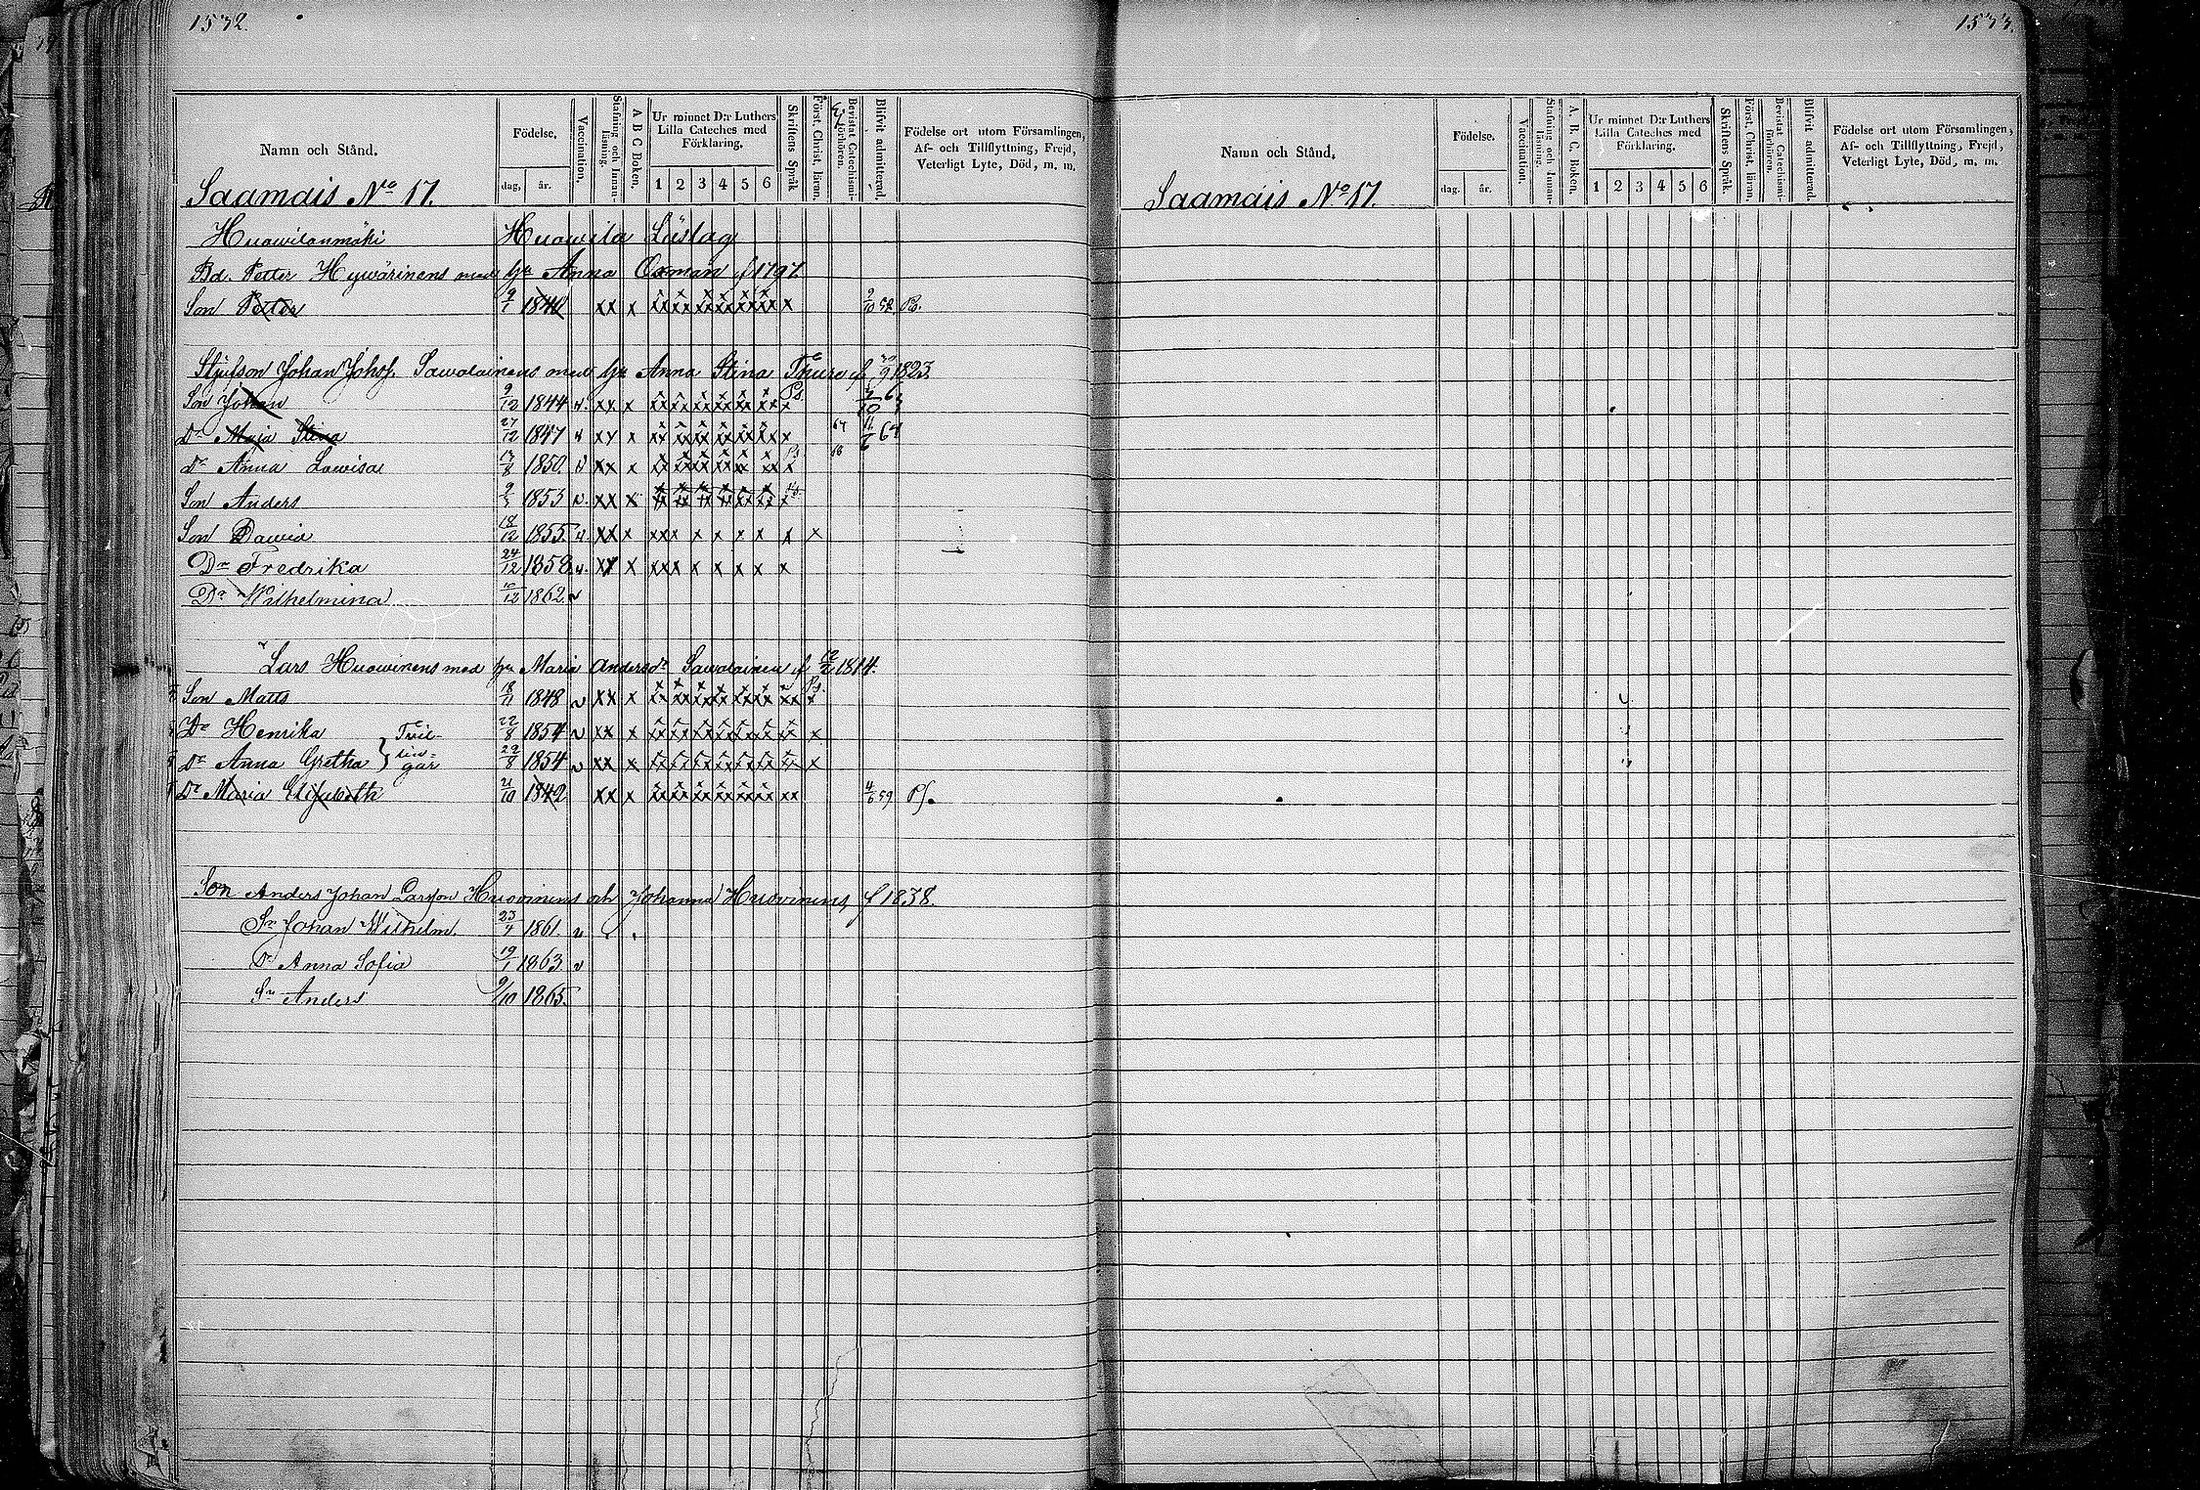 1532.
Namn och Stånd.
Födelse,
dag, år.
Vaccination.
Stafning och Innanläsning.
A B C Boken.
Ur minnet D:r Luthers Lilla Cateches med Förklaring.
1 2 3 4 5 6
Skriftens Språk
Först. Christ. läran.
Bevistat Catechismiförhören.
Blifvit admitterad.
Födelse ort utom Församlingen, Af- och Tillflyttning, Frejd, Veterligt Lyte, Död, m. m.
Saamais No 17.
Huowilanmäki Huowila Läslag
Bd. Petter Hywärinens med hu Anna Oxman f 1797.
Son Petter 9/1 1840 xx x 9/10 58 Ps.
Styfson Johan Johsf. Sawolainens med hu Anna Stina Thure f 30/9 1823
Son Johan 9/12 1844 v. xx x Ps. 63
Dr Maja Stina 27/12 1847 v xx x 64 11/6 64
Dr Anna Lowisa 1850 v xx x
Son Anders 1853 v. xx x
Son Dawid 18/12 1855 v. xx x xxx x x x x x x x
Dr Fredrika 24/12 1858 v. xx x xxx x x x x x
Dr Wilhelmina 10/12 1862 v
Lars Huowinens med hu Maria Andersdr Sawolainen f 12/2 1814.
Son Matts 18/11 1848 v xx x Ps.
Dr Henrika 22/8 1854 v xx x x
Dr Anna Gretha } Tvillingar 22/8 1854 v xx x x
Dr Maria Elisabeth 21/10 1842 xx x 4/6 59 Ps.
Son Anders Johan Larsson Huovinens och Johanna Huovinens f 1838.
Sn Johan Wilhelm. 23/4 1861. v
Dr Anna Sofia 19/1 1863 v
Sn Anders 9/10 1865.
1533.
Namn och Stånd,
Födelse.
dag. år.
Vaccination.
Stafning och Innanläsning.
A. B. C. Boken.
Ur minnet D:r Luthers Lilla Cateches med Förklaring.
1 2 3 4 5 6
Skriftens Språk.
Först. Christ. läran.
Bevistat Catechismiförhören.
Blifvit admitterad.
Födelse ort utom Församlingen, Af- och Tillflyttning, Frejd, Veterligt Lyte, Död, m. m.
Saamais No 17.